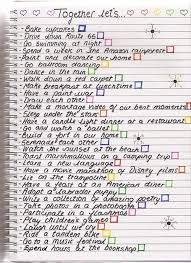 Together let's...
- Bake cupcakes
- Drive down Route 66
- Go swimming at night
- Spend a week in the Amazon rainforest
- Paint and decorate our home
- Go ballroom dancing
- Dance in the rain
- Walk down a red carpet
- Make breakfast at
- Have a paint war
- Draw each other
- Make a montage video of our best moments
- Sleep under the stars
- Have a candle light dinner at a restaurant
- Go and watch a ballet
- Build a fort in our home
- Serenade each other
- Watch the sunset at the beach
- Toast marshmallows on a camping trip
- Learn a new language
- Have a movie marathon of Disney films
- Lie on the trampoline
- Have a feast at an American diner
- Adopt a Labrador puppy
- Write a collection of amazing poetry
- Take photos in a photobooth
- Participate in a flashmob
- Play children's games
- Laugh until we cry
- Ride a tandem bike
- Go to a music festival
- Spend hours at the bookshop